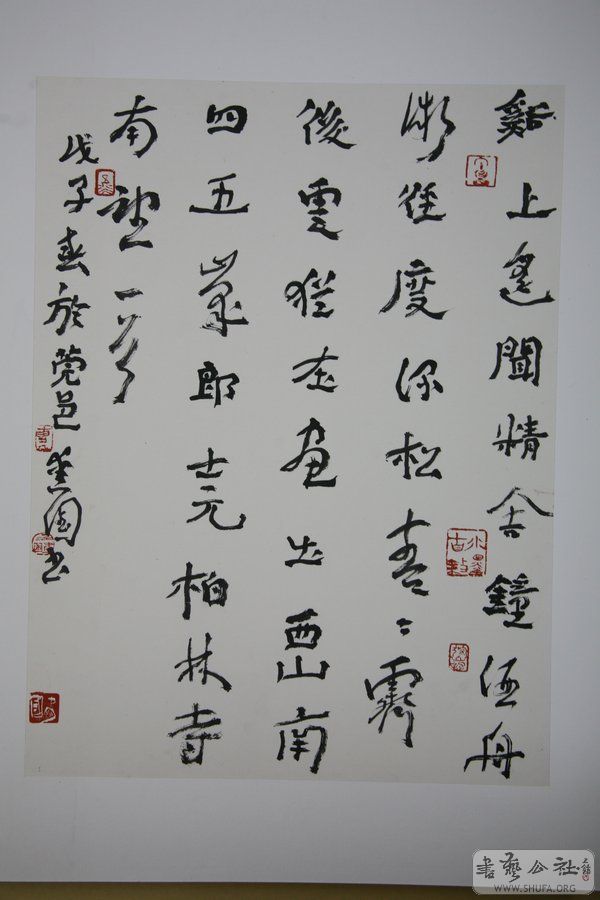 谿上遙聞精舍鐘泊舟
微徑度深松青〻霽
後雲猶在畫出西山南
四五峯郎士元柏林寺
南望一首
戊子春於莞邑書
書藝公社
WWW.SHUFA.ORG